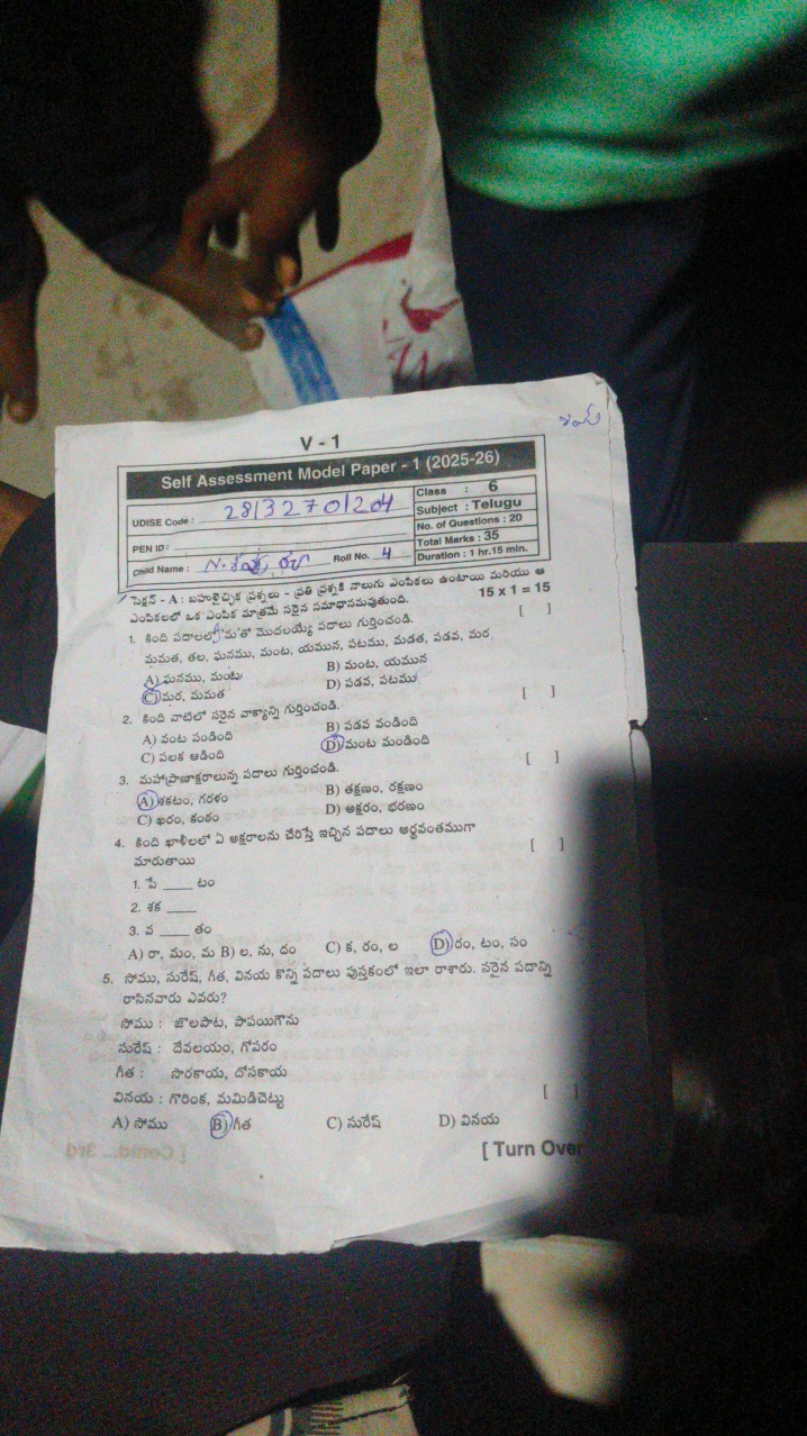 V - 1
Self Assessment Model Paper - 1 (2025-26)
UDISE Code : 28132701204
Class : 6
Subject : Telugu
No. of Questions : 20
PEN ID :
Total Marks : 35
Child Name : N. Roll No. 4
Duration : 1 hr.15 min.
సెక్షన్ - A : బహుళైచ్ఛిక ప్రశ్నలు - ప్రతి ప్రశ్నకి నాలుగు ఎంపికలు ఉంటాయి మరియు ఆ
ఎంపికలలో ఒక ఎంపిక మాత్రమే సరైన సమాధానమవుతుంది. 15 x 1 = 15
1. కింది పదాలలో 'మ'తో మొదలయ్యే పదాలు గుర్తించండి. [ ]
మమత, తల, ఘనము, మంట, యమున, పటము, మడత, పడవ, మర
A) ఘనము, మంట B) మంట, యమున
C) మర, మమత D) పడవ, పటము
2. కింది వాటిలో సరైన వాక్యాన్ని గుర్తించండి. [ ]
A) వంట పండింది B) పడవ వండింది
C) పలక ఆడింది D) మంట మండింది
3. మహాప్రాణాక్షరాలున్న పదాలు గుర్తించండి. [ ]
A) శకటం, గరళం B) తక్షణం, రక్షణం
C) ఖరం, కంఠం D) అక్షరం, భరణం
4. కింది ఖాళీలలో ఏ అక్షరాలను చేరిస్తే ఇచ్చిన పదాలు అర్థవంతముగా
మారుతాయి [ ]
1. పే ____ టం
2. శక ____
3. వ ____ తం
A) రా, మం, మ B) ల, ను, దం C) క, రం, ల D) రం, టం, సం
5. సోము, సురేష్, గీత, వినయ కొన్ని పదాలు పుస్తకంలో ఇలా రాశారు. సరైన పదాన్ని
రాసినవారు ఎవరు?
సోము : జొలపాట, పాపయిగౌను
సురేష్ : దేవలయం, గోపరం
గీత : సొరకాయ, దోసకాయ
వినయ : గొరింక, మమిడిచెట్టు [ ]
A) సోము B) గీత C) సురేష్ D) వినయ
[ Turn Over